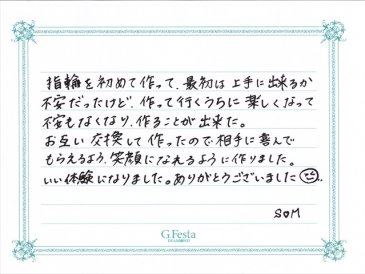 指輪を初めて作って、最初は上手に出来るか
不安だったけど、作って行くうちに楽しくなって
不安もなくなり、作ることが出来た。
お互い交換して作ったので相手に喜んで
もらえるよう、笑顔になれるように作りました。
いい体験になりました。ありがとうございました
S♡M
G.Festa